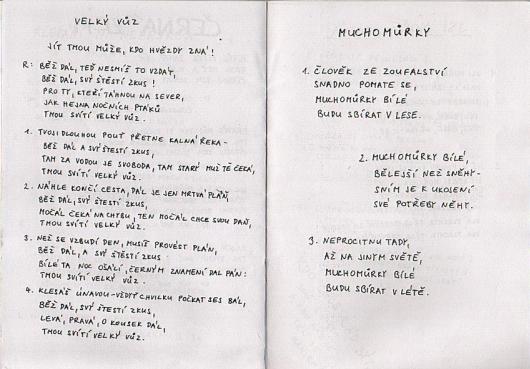 VELKÝ VŮZ
JÍT TMOU MŮŽE, KDO HVĚZDY ZNÁ!
R: BĚŽ DÁL, TEĎ NESMÍŠ TO VZDÁT,
BĚŽ DÁL, SVÝ ŠTĚSTÍ ZKUS!
PRO TY, KTEŘÍ TÁHNOU NA SEVER,
JAK HEJNA NOČNÍCH PTÁKŮ
TMOU SVÍTÍ VELKÝ VŮZ.
1. TVOJI DLOUHOU POUŤ PŘETNE KALNÁ ŘEKA-
BĚŽ DÁL A SVÝ ŠTĚSTÍ ZKUS,
TAM ZA VODOU JE SVOBODA, TAM STARÝ MUŽ TĚ ČEKÁ,
TMOU SVÍTÍ VELKÝ VŮZ.
2. NÁHLE KONČÍ CESTA, DÁL JE JEN MRTVÁ PLÁŇ,
BĚŽ DÁL, SVÝ ŠTĚSTÍ ZKUS,
MOČÁL ČEKÁ NA CHYBU, TEN MOČÁL CHCE SVOU DAŇ,
TMOU SVÍTÍ VELKÝ VŮZ.
3. NEŽ SE VZBUDÍ DEN, MUSÍŠ PROVÉST PLÁN,
BĚŽ DÁL A SVÝ ŠTĚSTÍ ZKUS:
BÍLÉ TA NOC OŠÁLÍ, ČERNÝM ZNAMENÍ DAL PÁN:
TMOU SVÍTÍ VELKÝ VŮZ.
4. KLESÁŠ ÚNAVOU-VŽDYŤ CHVILKU POČKAT SES BÁL,
BĚŽ DÁL, SVÝ ŠTĚSTÍ ZKUS,
LEVÁ, PRAVÁ, O KOUSEK DÁL,
TMOU SVÍTÍ VELKÝ VŮZ.
MUCHOMŮRKY
1. ČLOVĚK ZE ZOUFALSTVÍ
SNADNO POMATE SE,
MUCHOMŮRKY BÍLÉ
BUDU SBÍRAT V LESE.
2. MUCHOMŮRKY BÍLÉ,
BĚLEJŠÍ NEŽ SNĚHY-
SNÍM JE K UKOJENÍ
SVÉ POTŘEBY NĚHY.
3. NEPROCITNU TADY,
AŽ NA JINÝM SVĚTĚ,
MUCHOMŮRKY BÍLÉ
BUDU SBÍRAT V LÉTĚ.